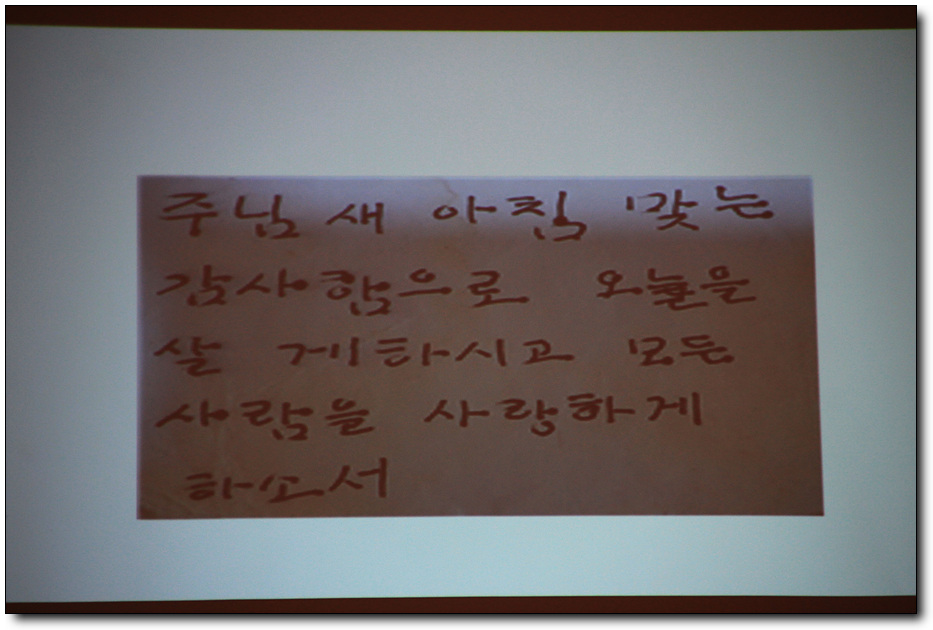 주님 새 아침 맞는
감사함으로 오늘을
살 게하시고 모든
사람을 사랑하게
하소서